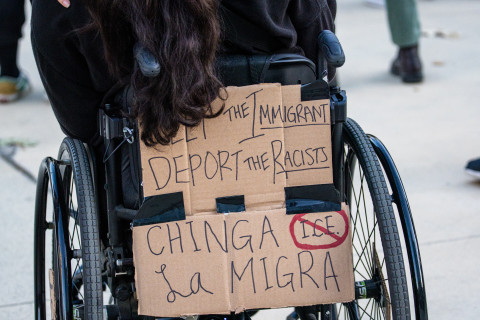 THE IMMIGRANT
DEPORT THE RACISTS
CHINGA I.C.E.
La MIGRA